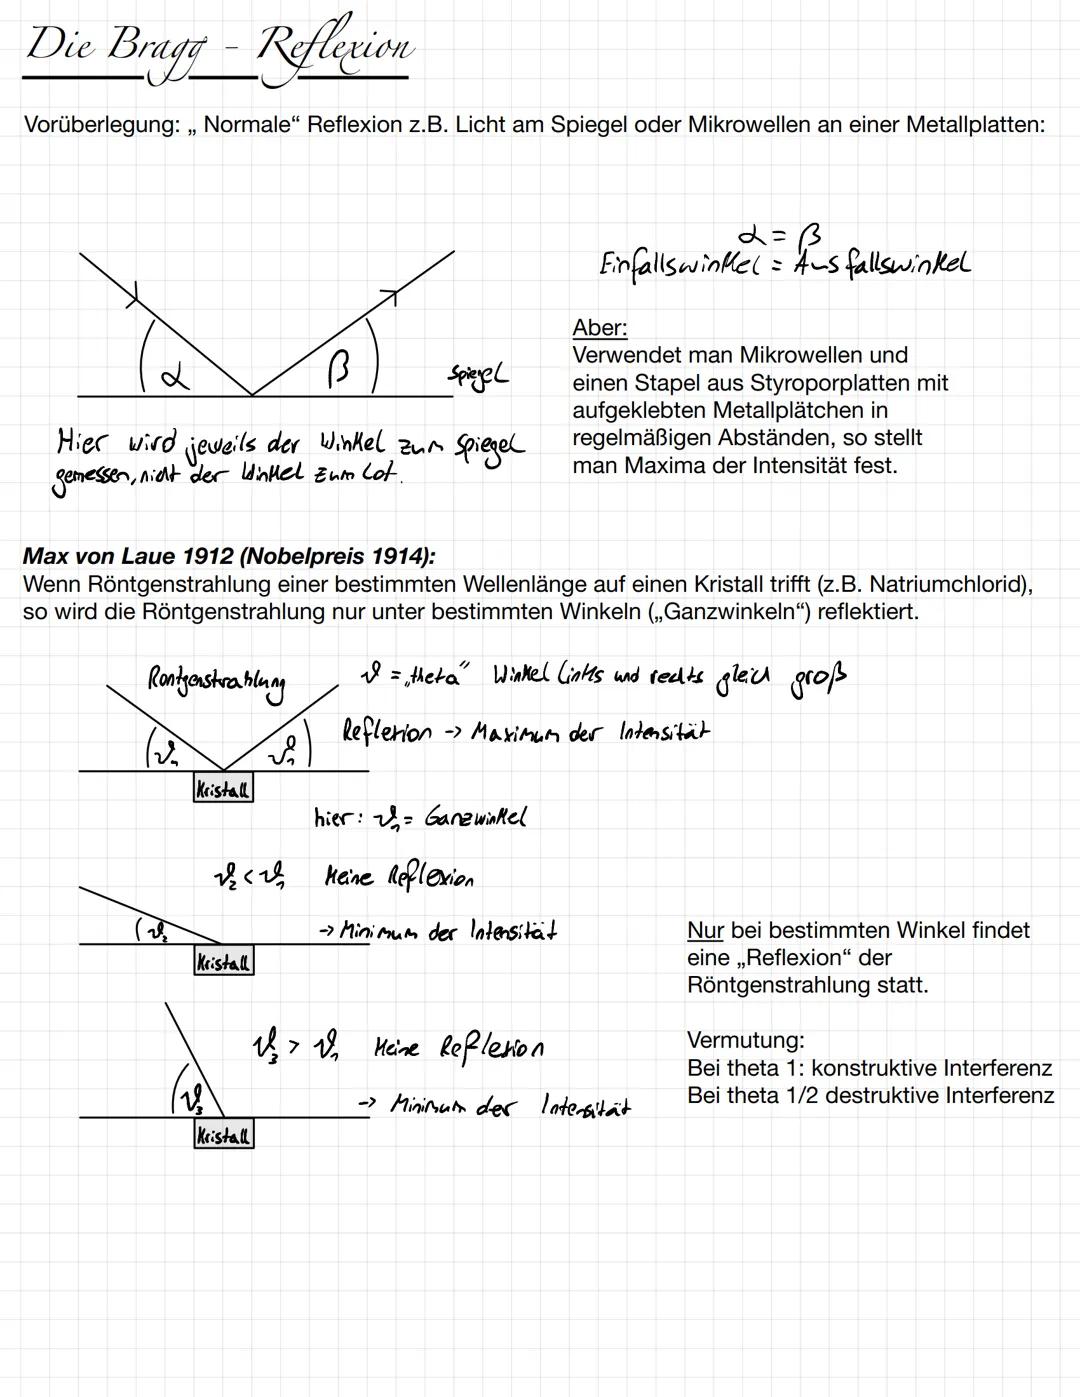 Die Bragg - Reflexion
Vorüberlegung: „ Normale“ Reflexion z.B. Licht am Spiegel oder Mikrowellen an einer Metallplatten:
α = β
Einfallswinkel = Ausfallswinkel
α
β
Spiegel
Hier wird jeweils der Winkel zum Spiegel
gemessen, nicht der Winkel zum Lot.
Aber:
Verwendet man Mikrowellen und
einen Stapel aus Styroporplatten mit
aufgeklebten Metallplätchen in
regelmäßigen Abständen, so stellt
man Maxima der Intensität fest.
Max von Laue 1912 (Nobelpreis 1914):
Wenn Röntgenstrahlung einer bestimmten Wellenlänge auf einen Kristall trifft (z.B. Natriumchlorid),
so wird die Röntgenstrahlung nur unter bestimmten Winkeln („Ganzwinkeln“) reflektiert.
Röntgenstrahlung
ϑ = „theta“ Winkel links und rechts gleich groß
Reflexion -> Maximum der Intensität
ϑ₁
ϑ₁
Kristall
hier: ϑ₁ = Ganzwinkel
ϑ₂ < ϑ₁ Keine Reflexion
ϑ₂
-> Minimum der Intensität
Kristall
ϑ₃ > ϑ₁ Keine Reflexion
ϑ₃
-> Minimum der Intensität
Kristall
Nur bei bestimmten Winkel findet
eine „Reflexion“ der
Röntgenstrahlung statt.
Vermutung:
Bei theta 1: konstruktive Interferenz
Bei theta 1/2 destruktive Interferenz